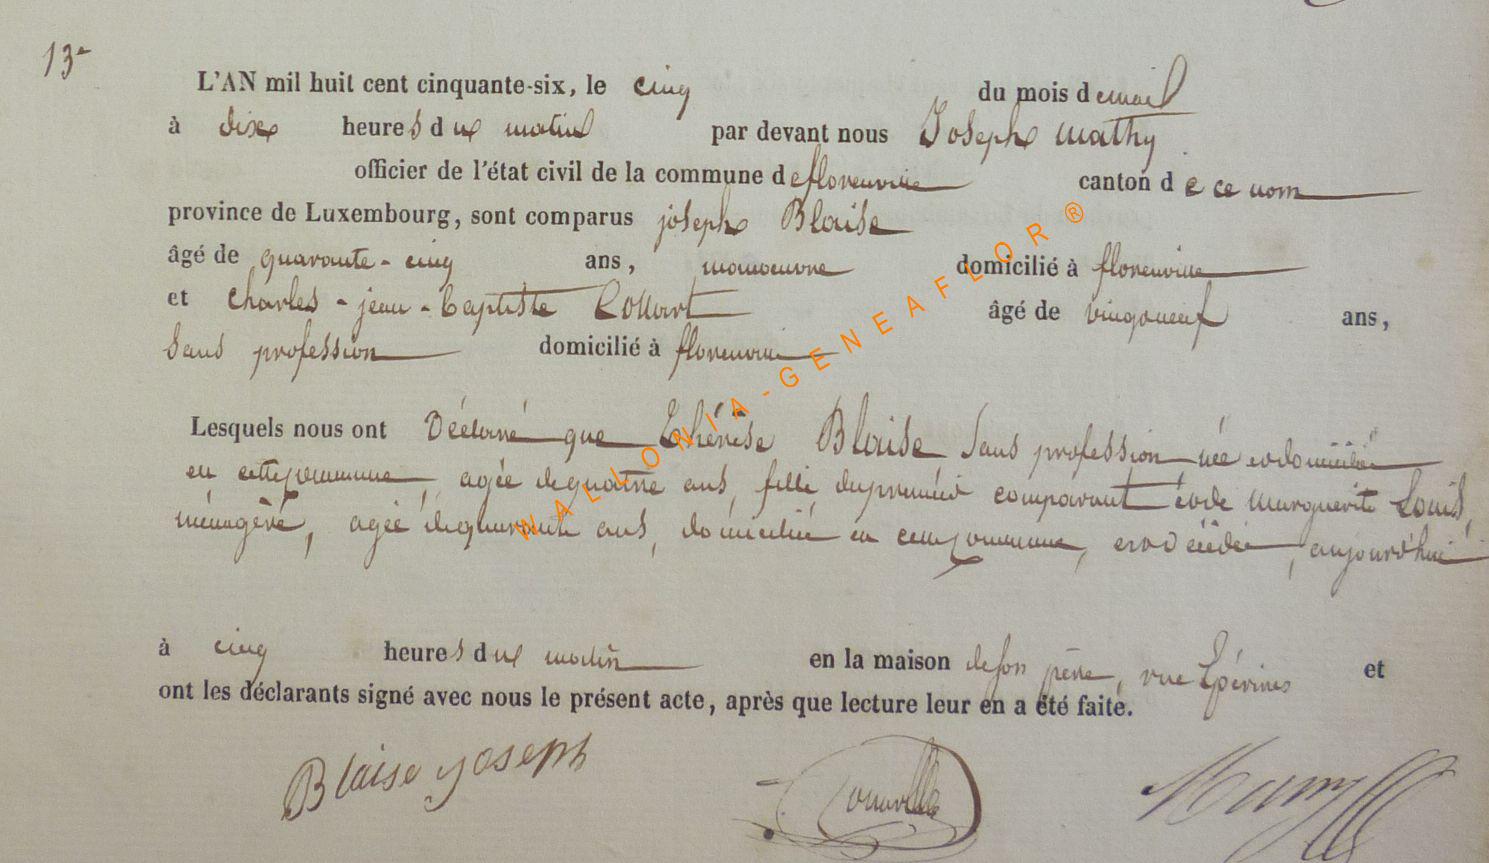 13.
L'AN mil huit cent cinquante-six, le cinq du mois d'avril
à dix heures du matin par devant nous Joseph Mathy
officier de l'état civil de la commune de florenville canton de ce nom
province de Luxembourg, sont comparus joseph Blaise
âgé de quarante-cinq ans, manoeuvre domicilié à florenville
et Charles-jean-Baptiste domicilié âgé de ans,
Sans profession domicilié à florenville
Lesquels nous ont Déclaré que Thérèse Blaise Sans profession, née domiciliée
en cette commune, agée de quatre ans, fille du premier comparant et de Marguerite Louis,
ménagère, agée de quarante ans, domiciliée en cette commune, est décédée, aujourd'hui
à cinq heures du matin en la maison de son père, rue et
ont les déclarants signé avec nous le présent acte, après que lecture leur en a été faite.
Blaise joseph
WALLONIA-GENEAFLOR®